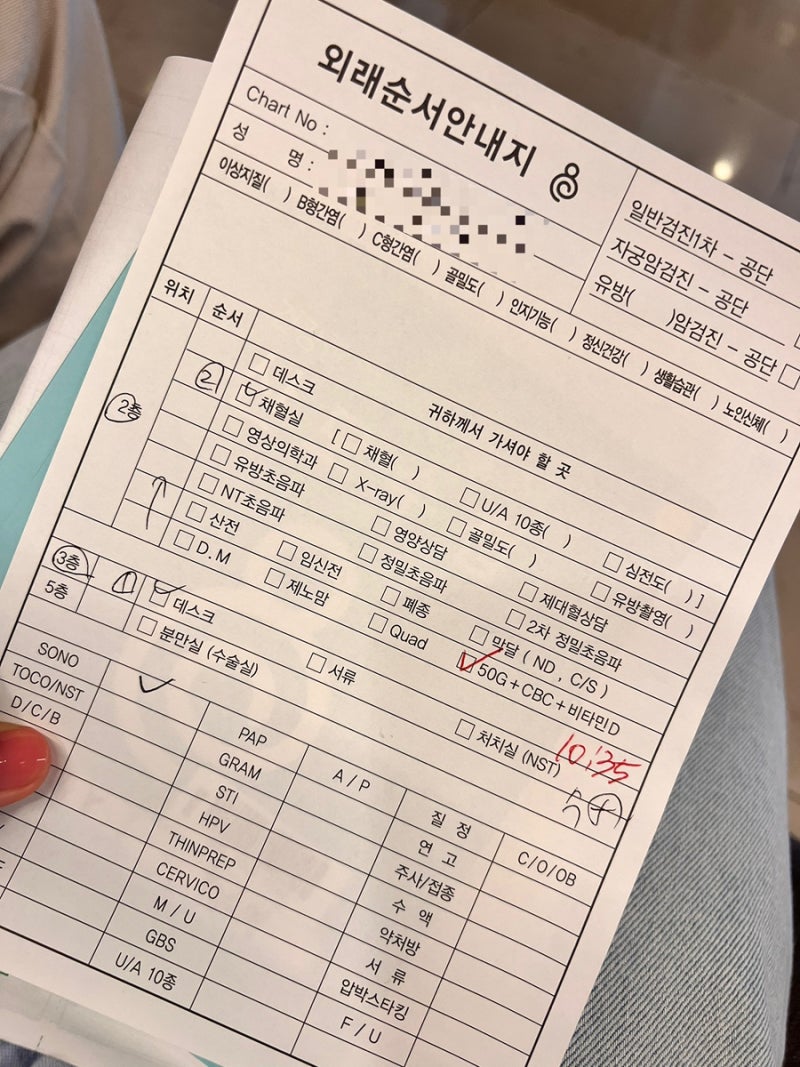 외래순서안내지
Chart No :
성 명 :
일반검진1차 - 공단
자궁암검진 - 공단
유방( )암검진 - 공단
이상지질( ) B형간염( ) C형간염( ) 골밀도( ) 인지기능( ) 정신건강( ) 생활습관( ) 노인신체( )
위치 순서 귀하께서 가셔야 할 곳
2층
데스크
② 채혈실 [ 채혈( ) U/A 10종( ) 심전도( ) ]
영상의학과 X-ray( ) 골밀도( ) 유방촬영( )
유방초음파 영양상담 제대혈상담
NT초음파 정밀초음파 2차 정밀초음파
산전 임신전 폐종 막달 ( ND , C/S )
D.M 제노맘 Quad 50G + CBC + 비타민D
3층 ① 데스크 서류 처치실 (NST) 10:35
5층 분만실 (수술실)
SONO PAP A / P 질 정 C/O/OB
TOCO/NST GRAM 연 고
D/C/B STI 주사/접종
HPV 수 액
THINPREP 약처방
CERVICO 서 류
M / U 압박스타킹
GBS F / U
U/A 10종